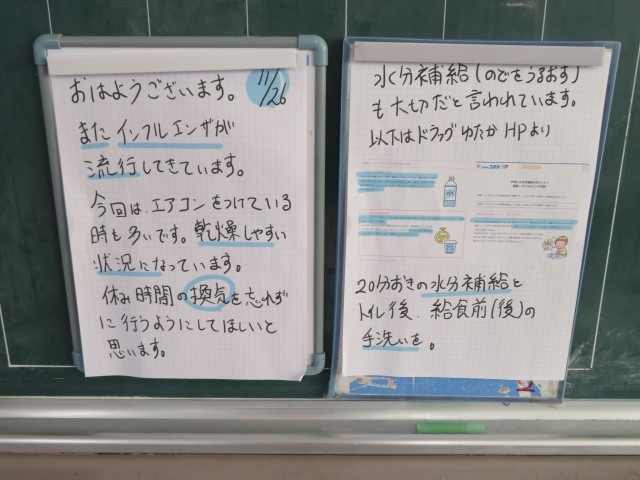 おはようございます。
11/26
また インフルエンザが
流行してきています。
今回は、エアコンをつけている
時も多いです。乾燥しやすい
状況になっています。
休み時間の換気を忘れず
に行うようにしてほしいと
思います。
水分補給(のどをうるおす)
も大切だと言われています。
以下はドラッグゆたか HPより
20分おきの水分補給と
トイレ後、給食前(後)の
手洗いを。